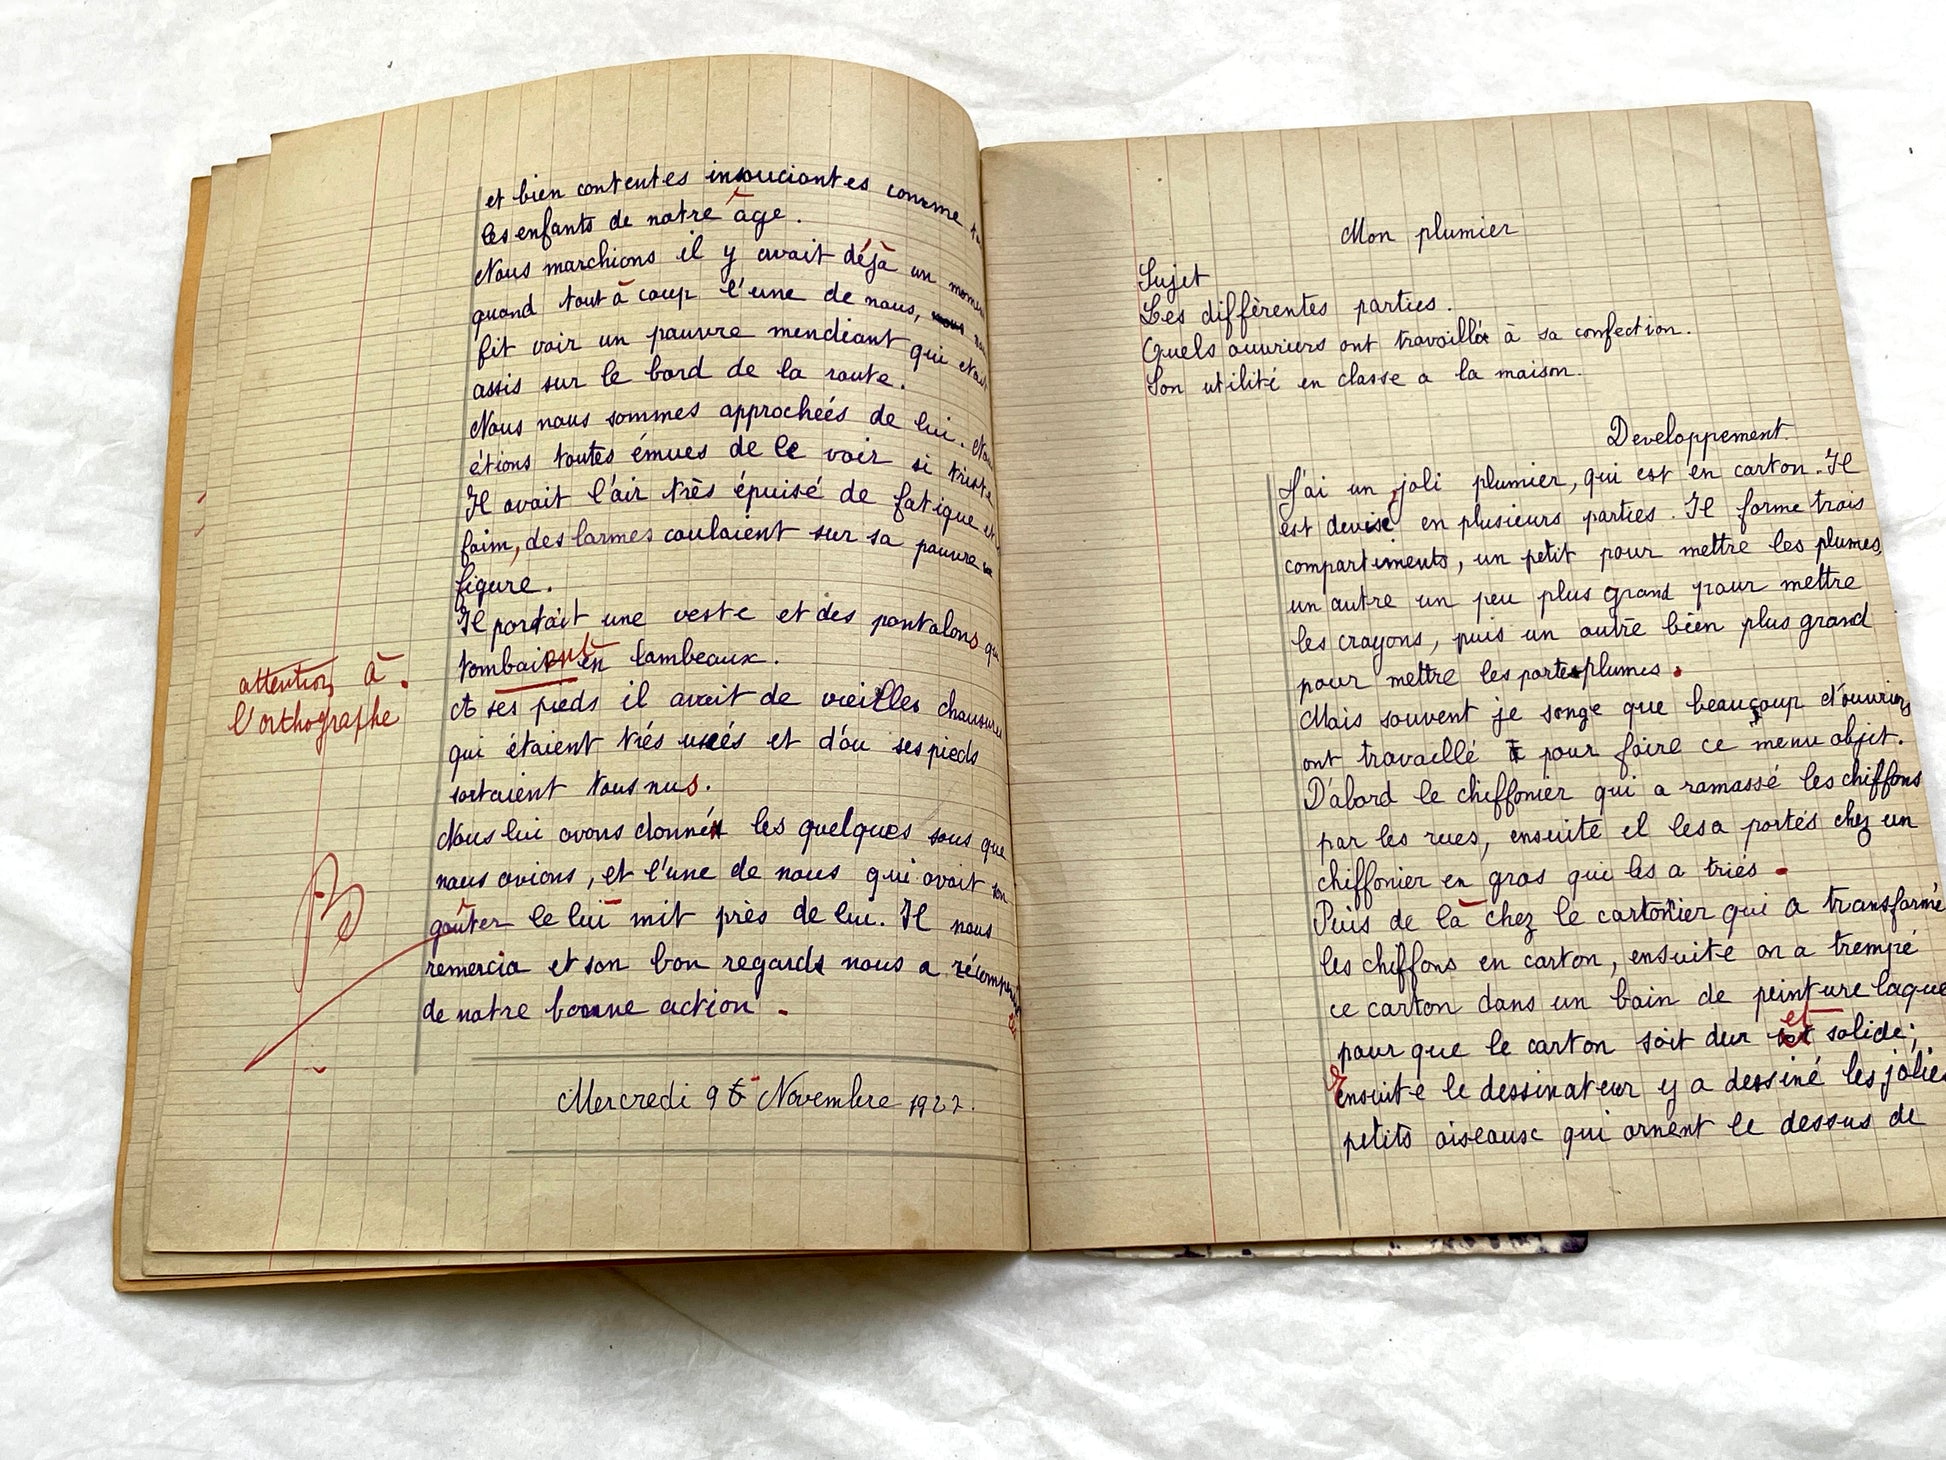 et bien contentes insouciantes comme
les enfants de notre âge.
Nous marchions il y avait déjà un
quand tout à coup l'une de nous,
fit voir un pauvre mendiant qui
assis sur le bord de la route.
Nous nous sommes approcheés de lui.
étions toutes émues de le voir si triste
Il avait l'air très épuisé de fatigue et
faim, des larmes coulaient sur sa pauvre
figure.
Il portait une veste et des pantalons
tombaient en lambeaux.
attention à
l'orthographe
A ses pieds il avait de vieilles
qui étaient trés usés et d'óu ses pieds
sortaient tous nus.
Nous lui avons donné les quelques sous que
nous avions, et l'une de nous qui avait son
B
goûter le lui mit près de lui. Il nous
remercia et son bon regards nous a
de notre bonne action.
Mercredi 9 Novembre 1927.
Mon plumier
Sujet
Les diffèrentes parties.
Quels ouvriers ont travaillé à sa confection.
Son utilité en classe a la maison.
Developpement.
J'ai un joli plumier, qui est en carton. Il
est devisé en plusieurs parties. Il forme trois
compartiments, un petit pour mettre les plumes,
un autre un peu plus grand pour mettre
les crayons, puis un autre bien plus grand
pour mettre les porteplumes.
Mais souvent je songe que beaucoup d'ouvriers
ont travaillé pour faire ce menu objet.
D'abord le chiffonier qui a ramassé les chiffons
par les rues, ensuite il les a portés chez un
chiffonier en gros qui les a triés.
Puis de là chez le cartonier qui a transformé
les chiffons en carton, ensuite on a trempé
ce carton dans un bain de peinture laque
pour que le carton soit dur et solide;
Ensuite le dessinateur y a dessiné les jolies
petits oiseaux qui ornent le dessus de